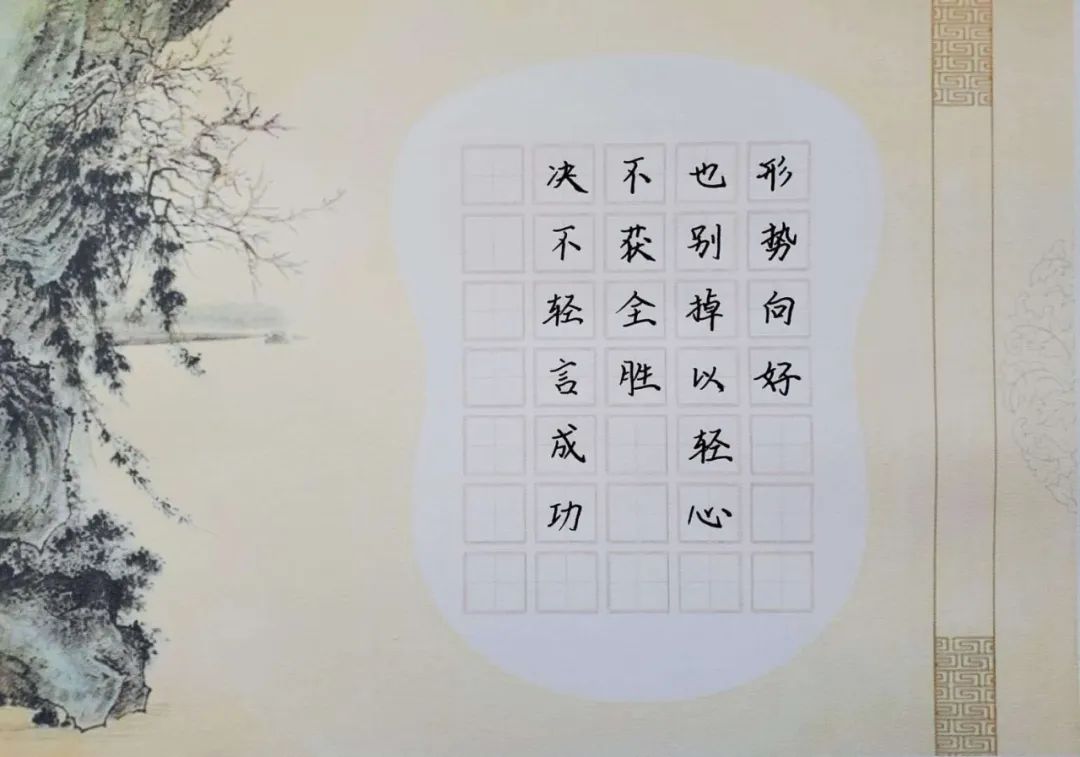 形势向好
也别掉以轻心
不获全胜
决不轻言成功